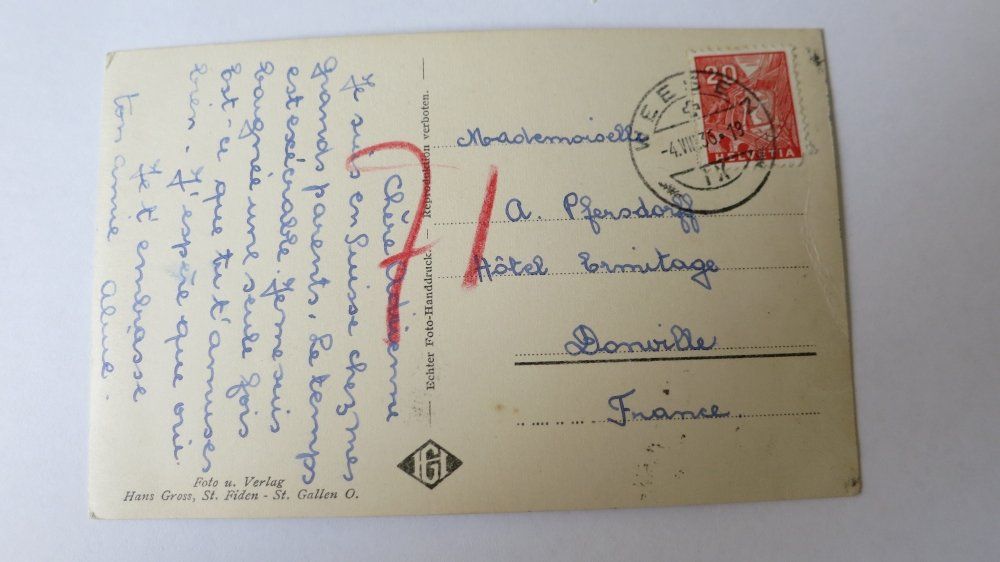 Chère Adrienne
Je suis en Suisse chez mes
grands parents, Le temps
est exécrable. Je me suis
baignée une seule fois
Est-ce que tu t'amuses
bien. J'espère que oui.
Je t'embrasse
ton amie Aline.
71
Echter Foto-Handdruck. — Reproduktion verboten.
Foto u. Verlag
Hans Gross, St. Fiden - St. Gallen O.
HG
20
HELVETIA
WEESEN
-4.VIII.36-18
IX
Mademoiselle
A. Pfersdorff
Hôtel Ermitage
Donville
France.